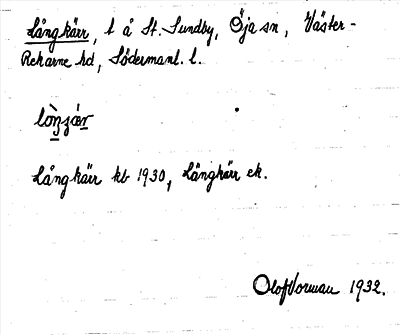 Långkärr, t å St. Sundby, Öja sn, Väster-
Rekarne hd, Södermanl. l.
Långkärr kb 1930, Långkärr ek.
Olof Vorman 1932.